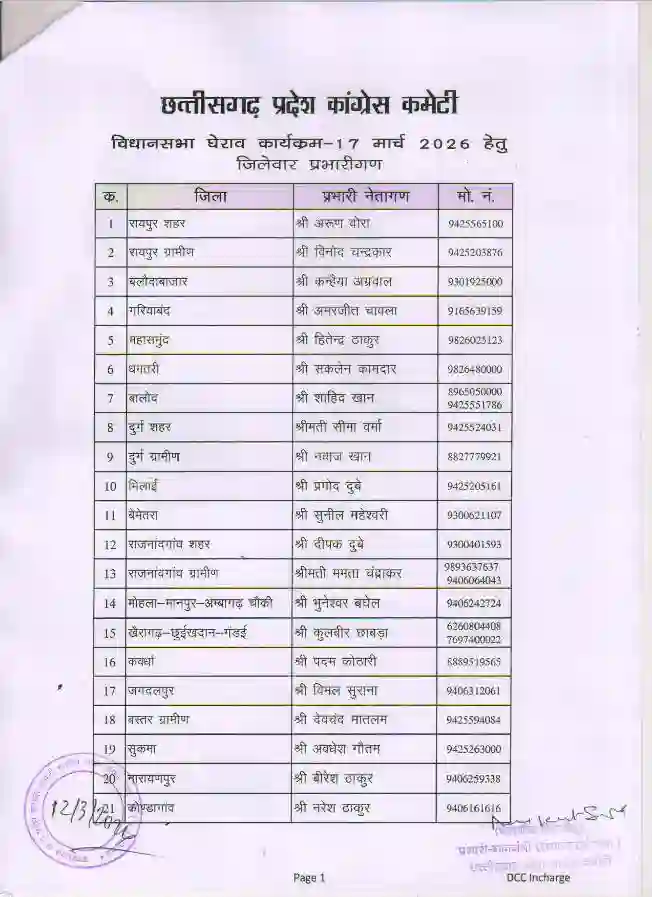 छत्तीसगढ़ प्रदेश कांग्रेस कमेटी
विधानसभा घेराव कार्यक्रम-17 मार्च 2026 हेतु
जिलेवार प्रभारीगण
क. जिला प्रभारी नेतागण मो. नं.
1 रायपुर शहर श्री अरूण वोरा 9425565100
2 रायपुर ग्रामीण श्री विनोद चन्द्रकार 9425203876
3 बलौदाबाजार श्री कन्हैया अग्रवाल 9301925000
4 गरियाबंद श्री अमरजीत चावला 9165639159
5 महासमुंद श्री हितेन्द्र ठाकुर 9826025123
6 धमतरी श्री सकलेन कामदार 9826480000
7 बालोद श्री शाहिद खान 8965050000
9425551786
8 दुर्ग शहर श्रीमती सीमा वर्मा 9425524031
9 दुर्ग ग्रामीण श्री नवाज खान 8827779921
10 भिलाई श्री प्रमोद दुबे 9425205161
11 बेमेतरा श्री सुनील महेश्वरी 9300621107
12 राजनांदगांव शहर श्री दीपक दुबे 9300401593
13 राजनांदगांव ग्रामीण श्रीमती ममता चंद्राकर 9893637637
9406064043
14 मोहला-मानपुर-अम्बागढ़ चौकी श्री भुनेश्वर बघेल 9406242724
15 खैरागढ़-छुईखदान-गंडई श्री कुलबीर छाबड़ा 6260804408
7697400022
16 कवर्धा श्री पदम कोठारी 8889519565
17 जगदलपुर श्री विमल सुराना 9406312061
18 बस्तर ग्रामीण श्री देवचंद मातलम 9425594084
19 सुकमा श्री अवधेश गौतम 9425263000
20 नारायणपुर श्री बीरेश ठाकुर 9406259338
21 कोण्डागांव श्री नरेश ठाकुर 9406161616
12/3/2026
Page 1 DCC Incharge